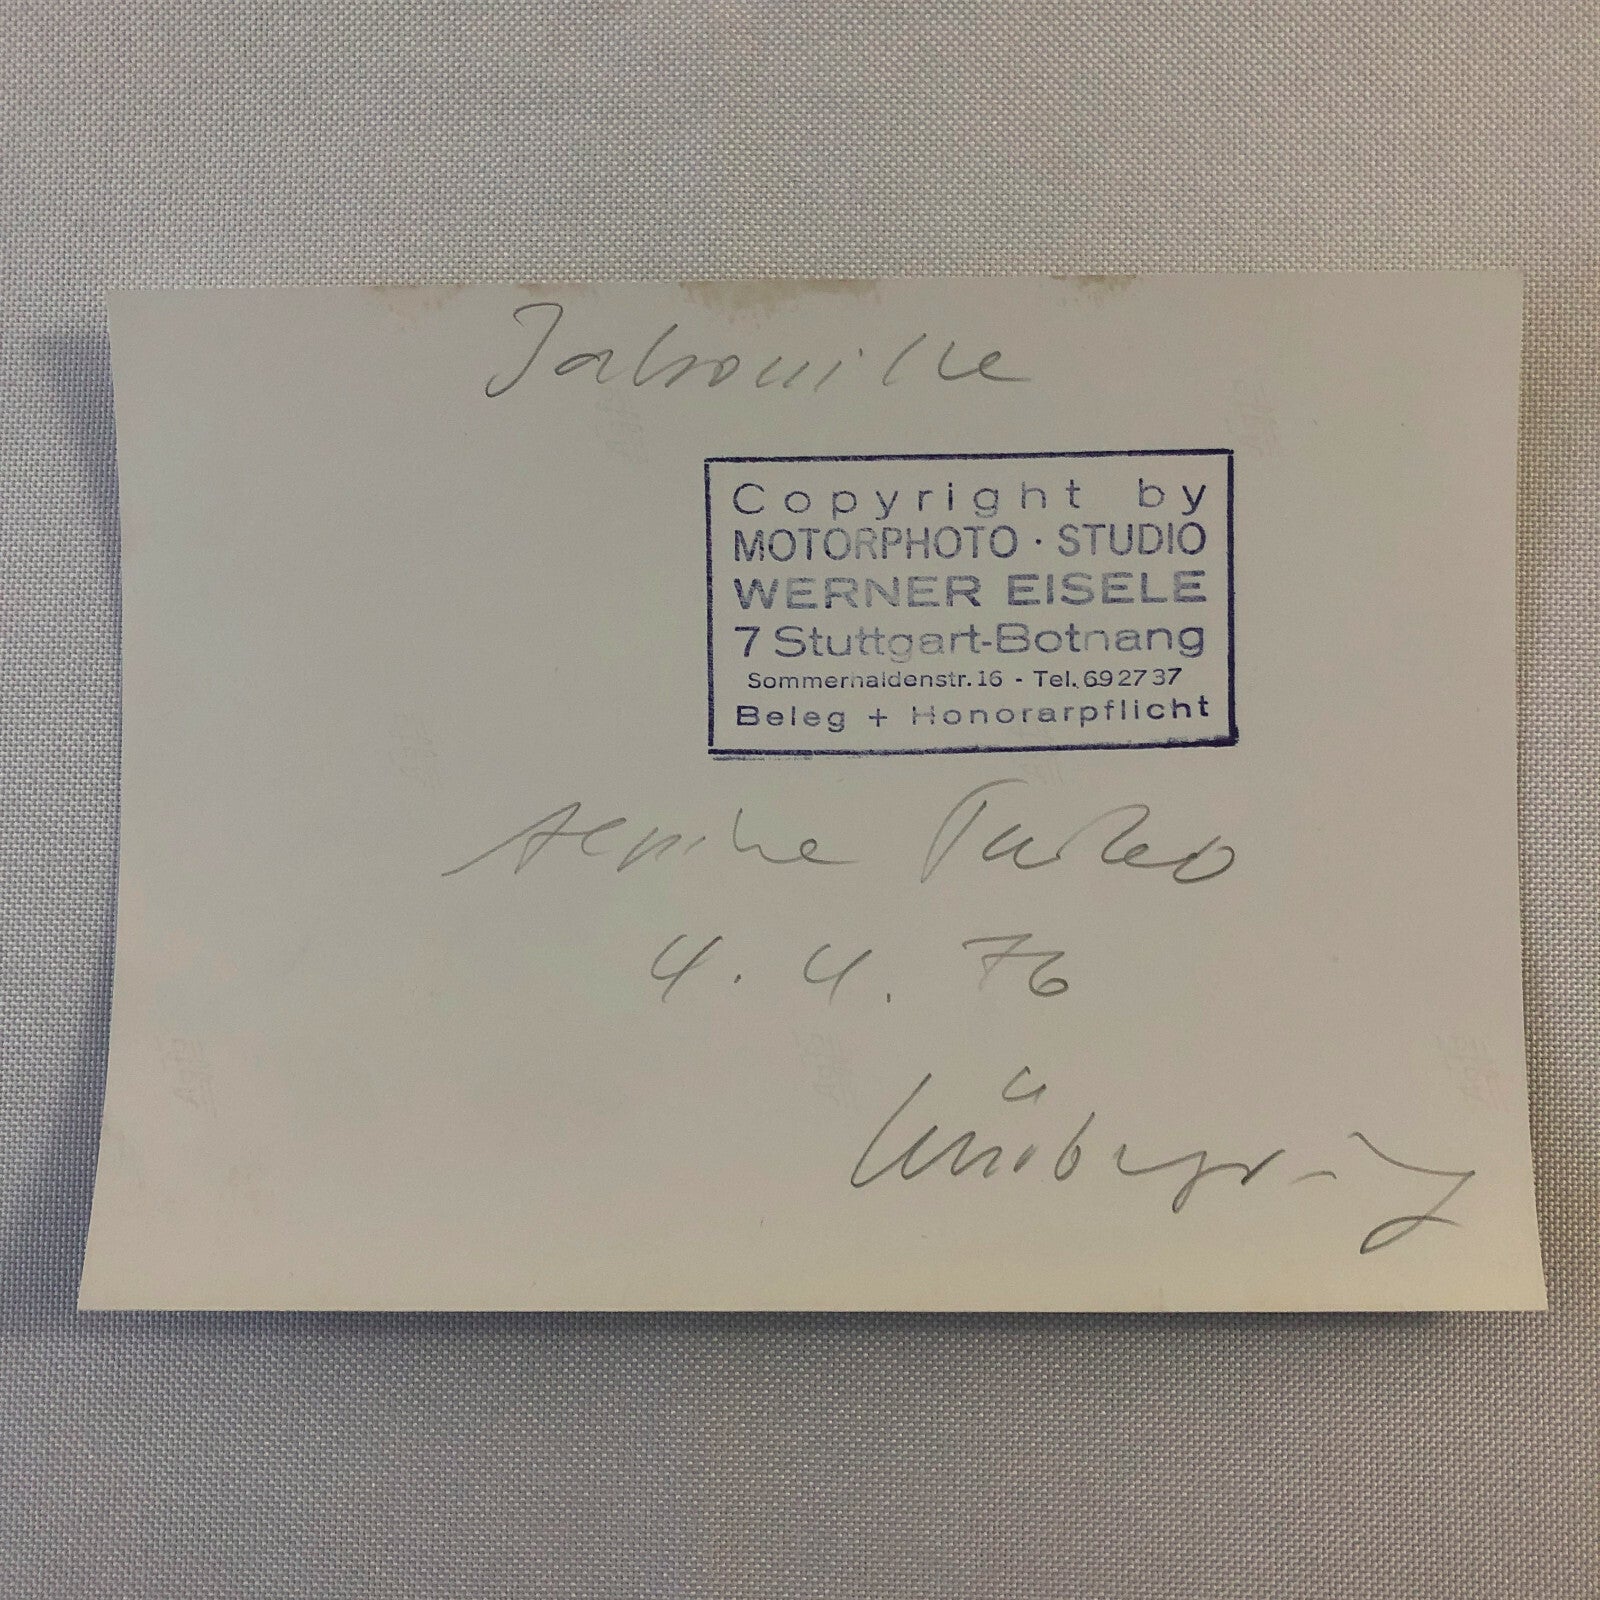 Jabouille
Copyright by
MOTORPHOTO · STUDIO
WERNER EISELE
7 Stuttgart-Botnang
Sommerhaldenstr. 16 - Tel. 692737
Beleg + Honorarpflicht
Alpine Turbo
4. 4. 76
Nürburgring